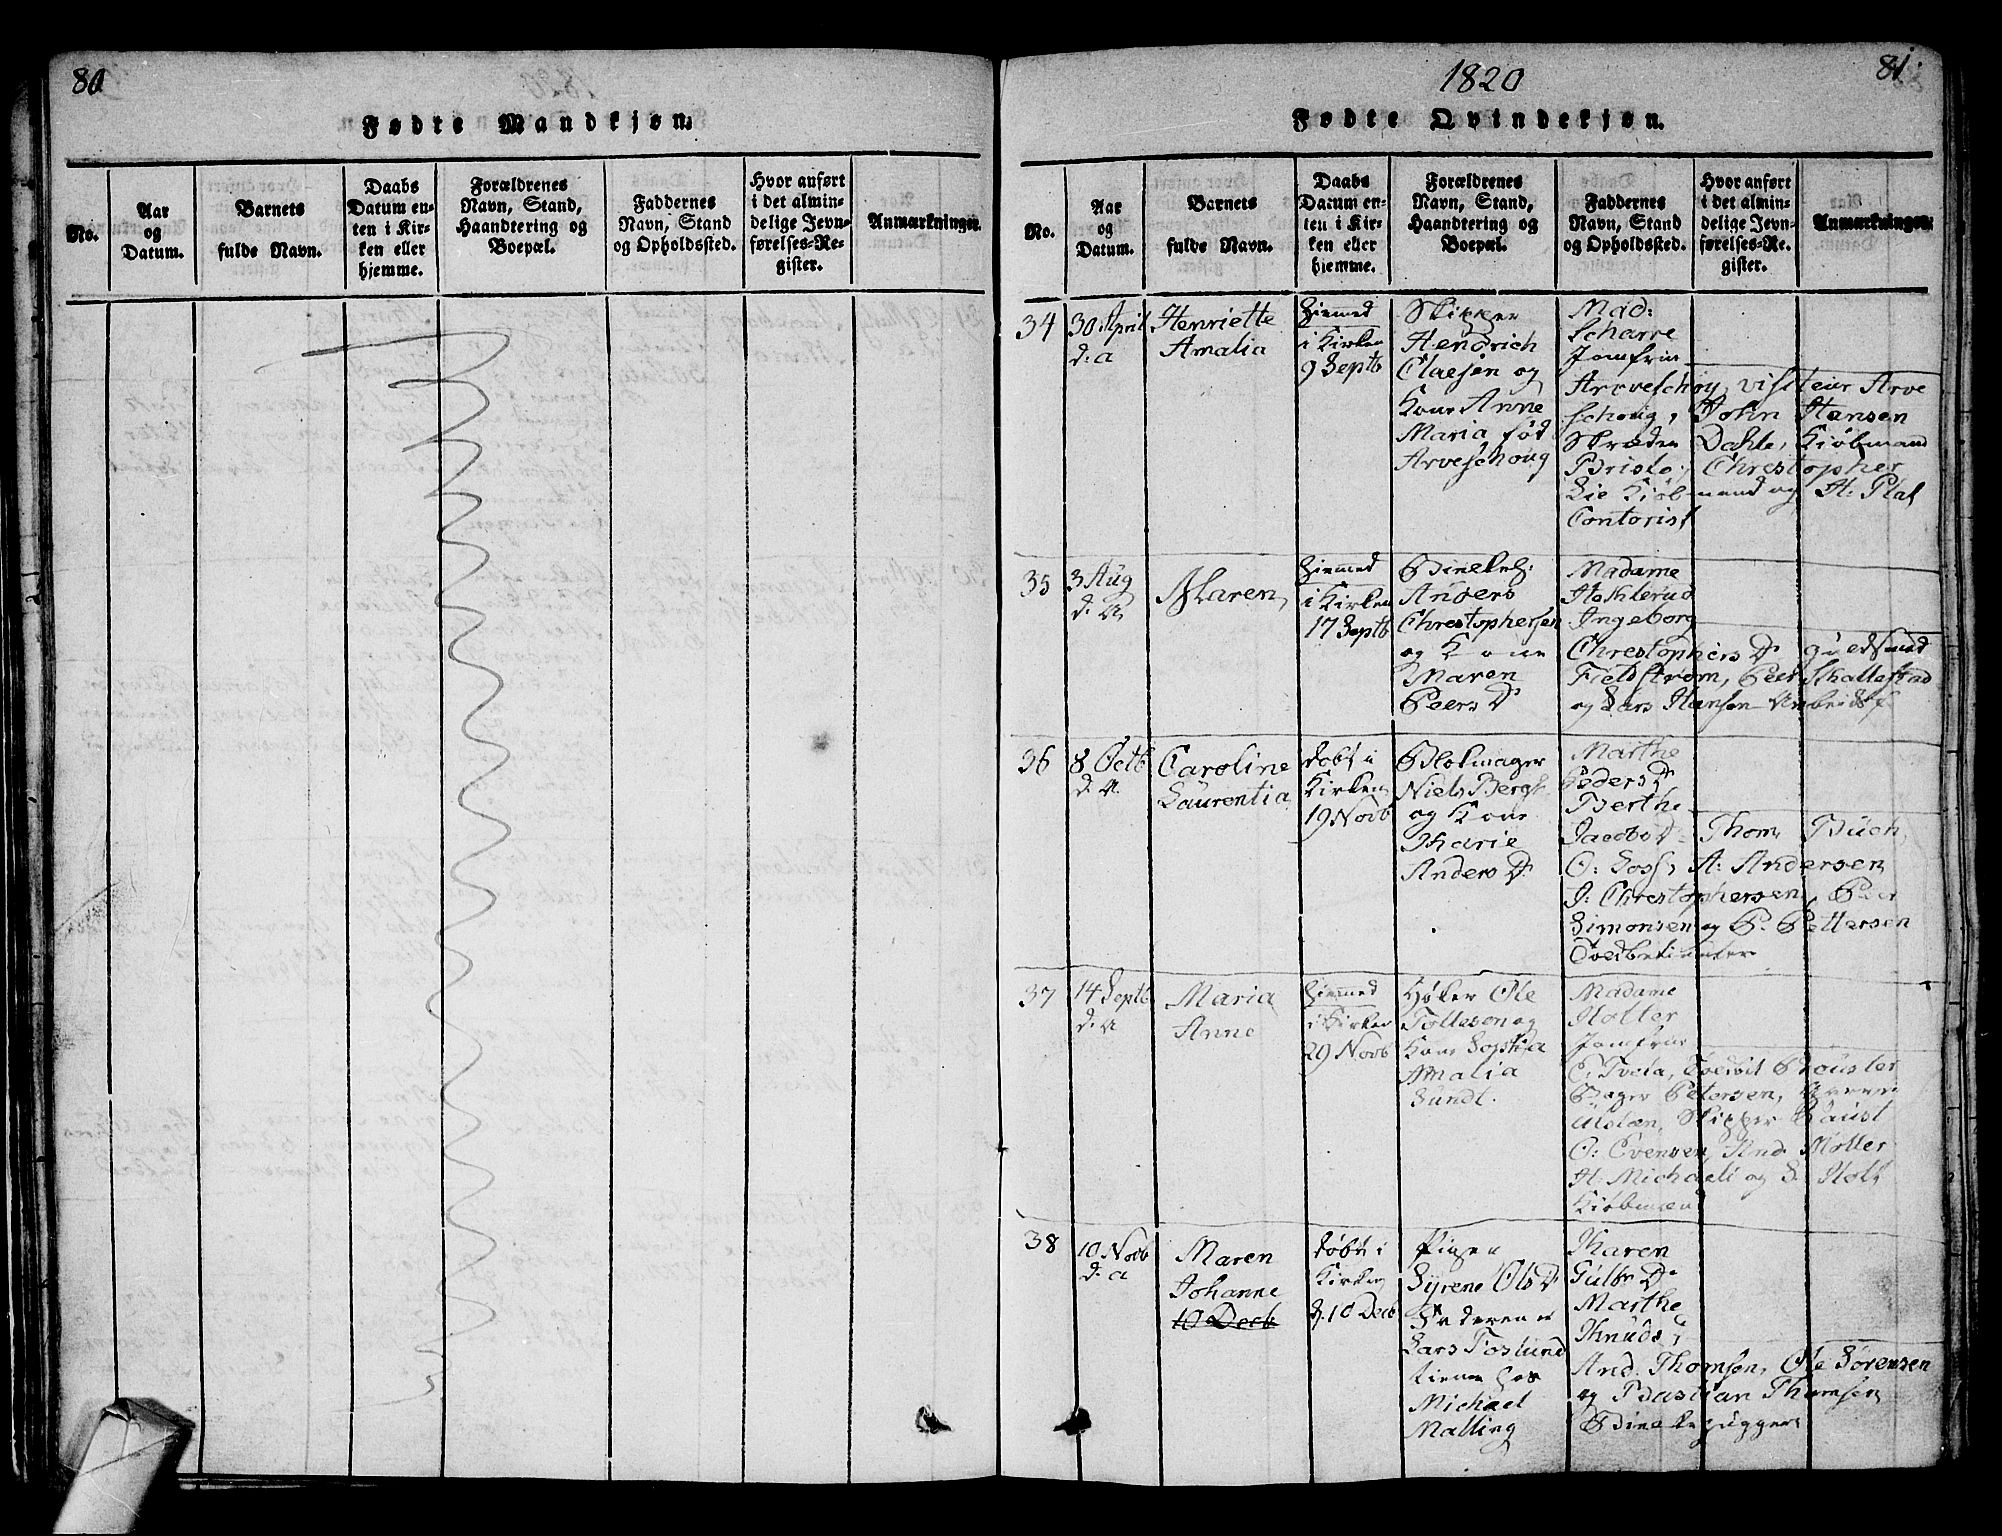 80
Fødte Mandkjøn.
No.
Aar
og
Datum.
Barnets
fulde Navn.
Daabs
Datum en-
ten i Kir-
ken eller
hjemme.
Forældrenes
Navn, Stand,
Haandtering og
Boepæl.
Faddernes
Navn, Stand
og Opholdssted.
Hvor anført
i det almin-
delige Jevn-
førelses-Re-
gister.
Anmærkninger.
1820
81.
Fødte Qvindekjøn.
No.
Aar
og
Datum.
Barnets
fulde Navn.
Daabs
Datum en-
ten i Kir-
ken eller
hjemme.
Forældrenes
Navn, Stand,
Haandtering og
Boepæl.
Faddernes
Navn, Stand
og Opholdssted.
Hvor anført
i det almin-
delige Jevn-
førelses-Re-
gister.
Anmærkninger.
34
30 April
d: a
Henriette
Amalia
Hiemed
i Kirken
9 Septb
Skipper
Hendrich
Claesen og
Kone Anne
Maria fød
Arveschoug
Mad:
Scharre
Jomfru
Arveschoug, visiteur Arve
schoug, John Hansen
Skræder Dahle, Kiøbmand
Christopher
Lie Kiøbmand og H: Plat
Contorist
35
3 Aug
d: A
Maren
Hiemed
i Kirken
17 Septb
Anders
Christophersen
og Kone
Maren
Peers D
Madame
Ingeborg
Christophers D guldsmed
Fieldstrøm, Peer Skallestad
og Lars Hansen Arbeidsf
36
8 Octb
d: A
Caroline
Laurentia
døbt i
Kirken
19 Novb
Blokmager
Niels Bergh
og Kone
Marie
Anders D
Marthe
Peders D
Berthe
Jacobs D Thom Buch,
O: Loss, A: Andersen,
J: Christophersen, Peer
Simonsen og P. Pettersen
Toldbetienter
37
14 Septb
d: A
Maria
Anne
Hiemed
i Kirken
29 Novb
Høker Ole
Tollesen og
Kone Sophia
Amalia
Lundt.
Madame
Holter
Jomfrue
Bager Petersen,
Skipper
O: Evensen, And Møller
H: Michaeli og S. Holt
Kiøbmænd
38
10 Novb
d: a
Maren
Johanne
10 Decb
døbt i
Kirken
d. 10 Decb
Pigen
Syrene Ols D
Faderen er
Lars Foslund
tiener hos
Michael
Malling
Karen
Gulbr D
Marthe
Knuds D
And. Thomsen, Ole Sørensen
og Bastian Thomsen